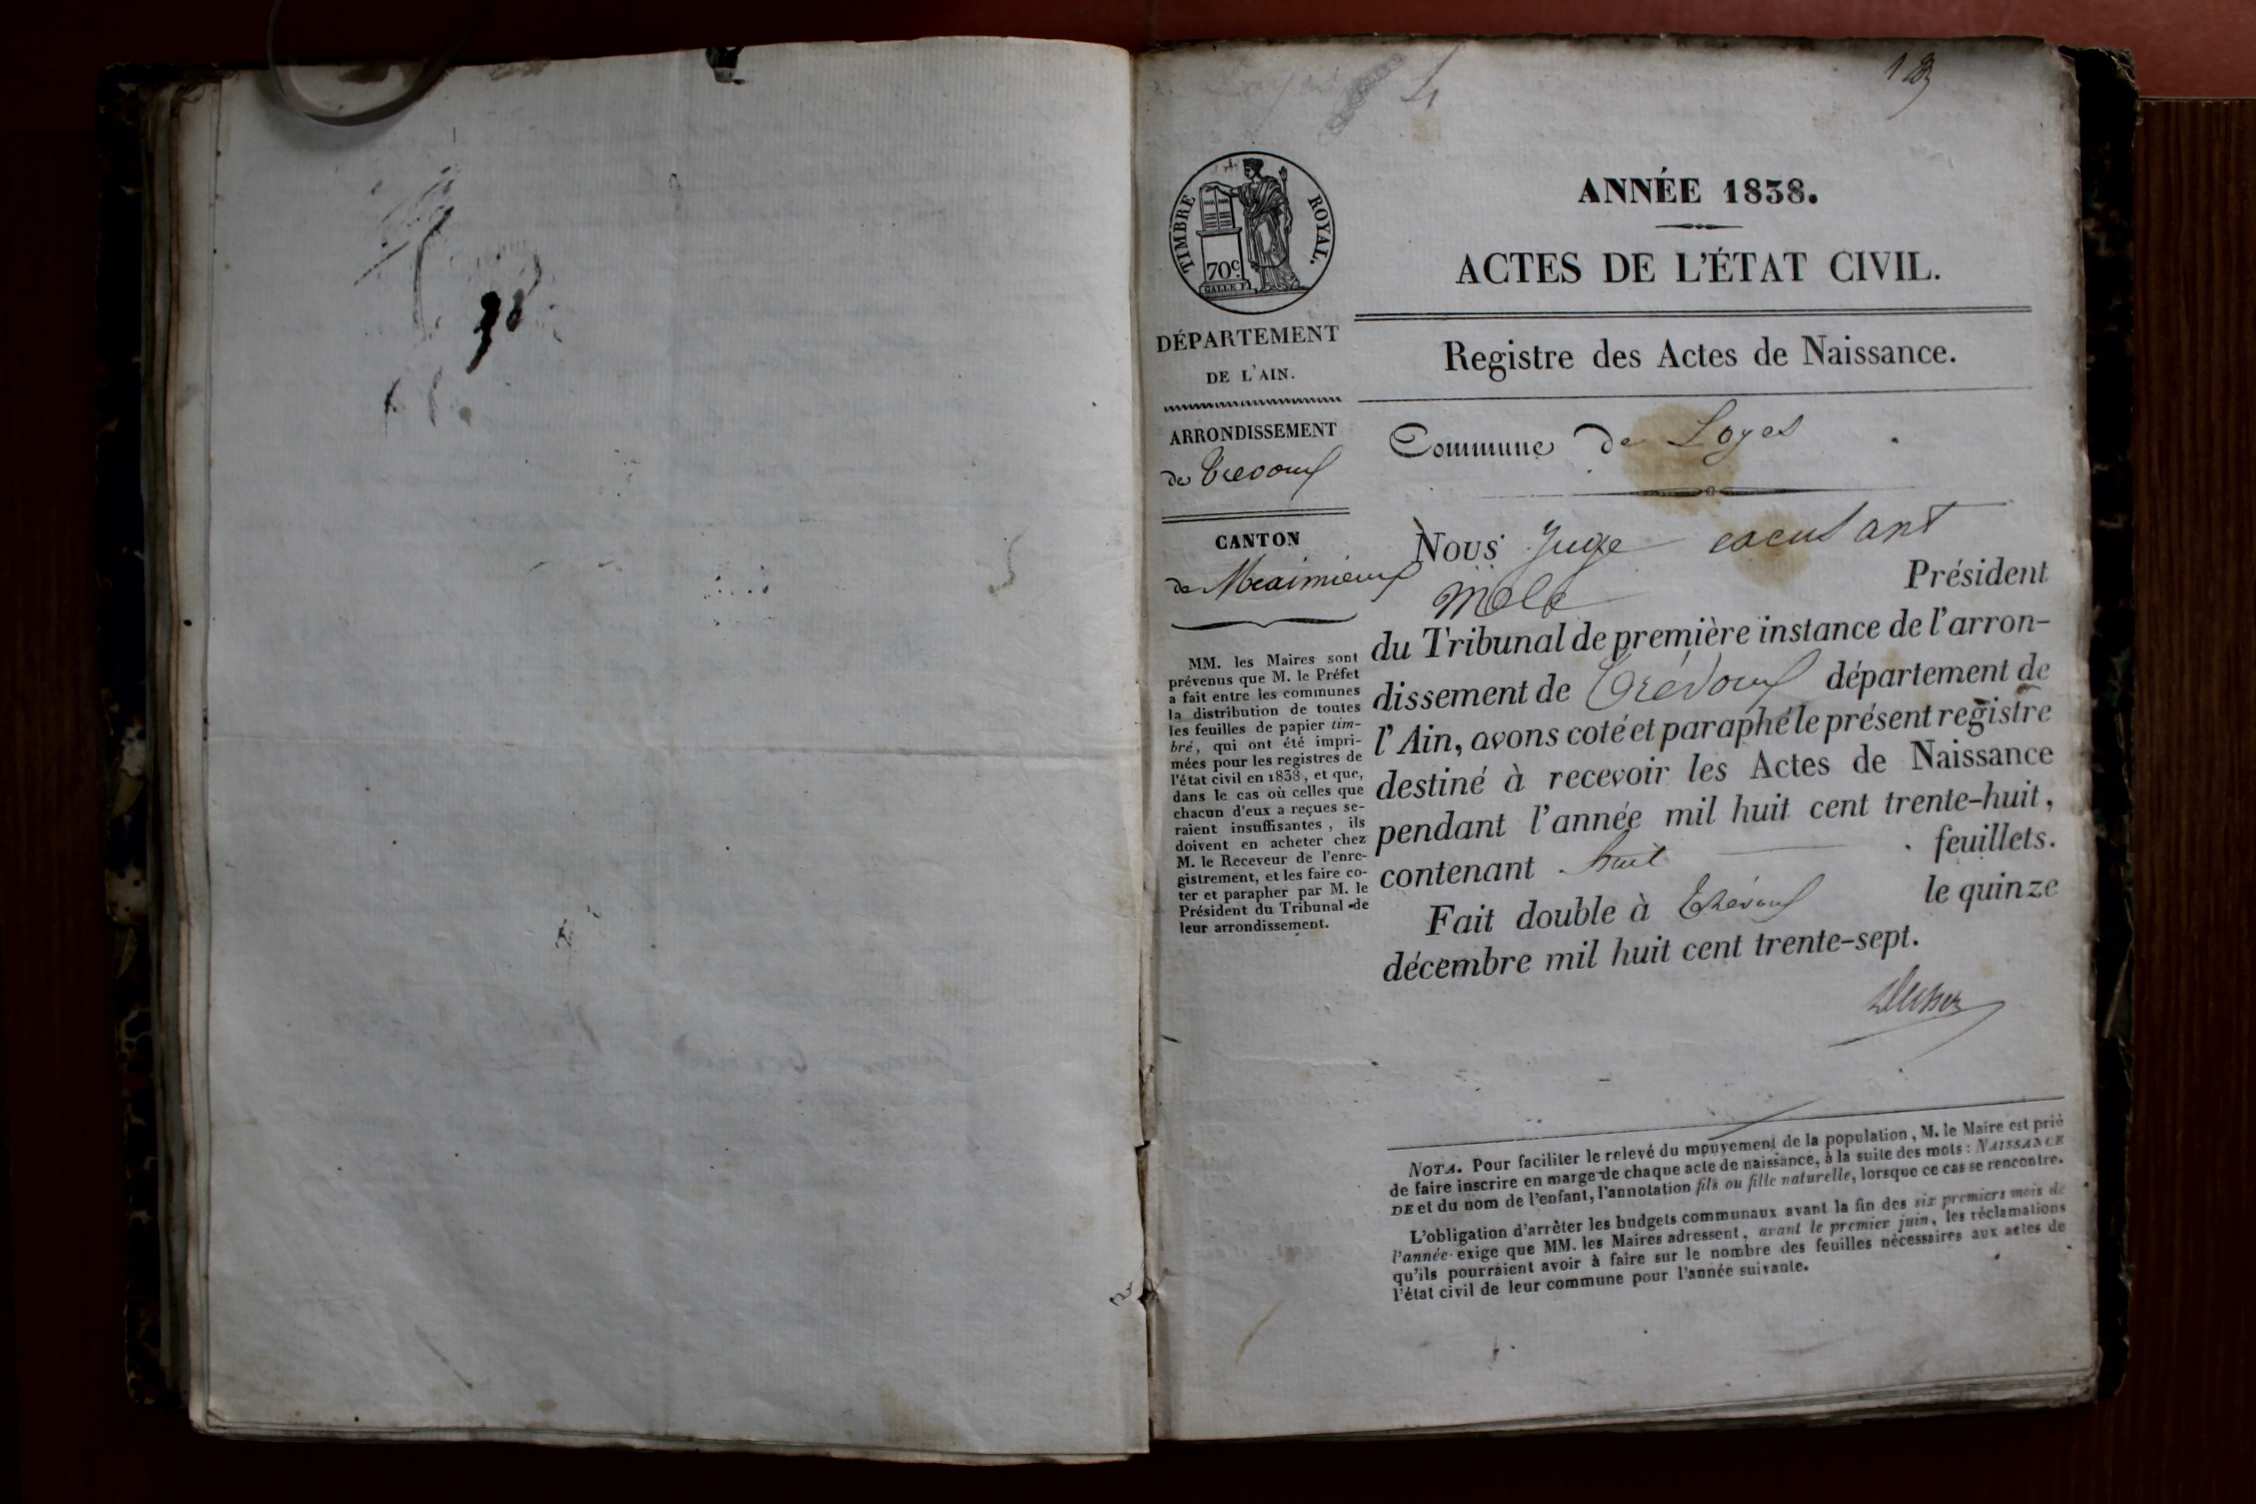 ANNÉE 1838.
ACTES DE L'ÉTAT CIVIL.
TIMBRE ROYAL.
70c
DÉPARTEMENT
DE L'AIN.
ARRONDISSEMENT
de Trevoux
CANTON
de Meximieux
MM. les Maires sont
prévenus que M. le Préfet
a fait entre les communes
la distribution de toutes
les feuilles de papier tim-
bré, qui ont été impri-
mées pour les registres de
l'état civil en 1838, et que,
dans le cas où celles que
chacun d'eux a reçues se-
raient insuffisantes, ils
doivent en acheter chez
M. le Receveur de l'enre-
gistrement, et les faire co-
ter et parapher par M. le
Président du Tribunal de
leur arrondissement.
Registre des Actes de Naissance.
Commune de Loyes
Nous Juge
Président
du Tribunal de première instance de l'arron-
dissement de Trévoux département de
l'Ain, avons coté et paraphé le présent registre
destiné à recevoir les Actes de Naissance
pendant l'année mil huit cent trente-huit,
contenant huit feuillets.
Fait double à Trévoux le quinze
décembre mil huit cent trente-sept.
NOTA. Pour faciliter le relevé du mouvement de la population, M. le Maire est prié
de faire inscrire en marge de chaque acte de naissance, à la suite des mots : NAISSANCE
DE et du nom de l'enfant, l'annotation fils ou fille naturelle, lorsque ce cas se rencontre.
L'obligation d'arrêter les budgets communaux avant la fin des six premiers mois de
l'année exige que MM. les Maires adressent, avant le premier juin, les réclamations
qu'ils pourraient avoir à faire sur le nombre des feuilles nécessaires aux actes de
l'état civil de leur commune pour l'année suivante.